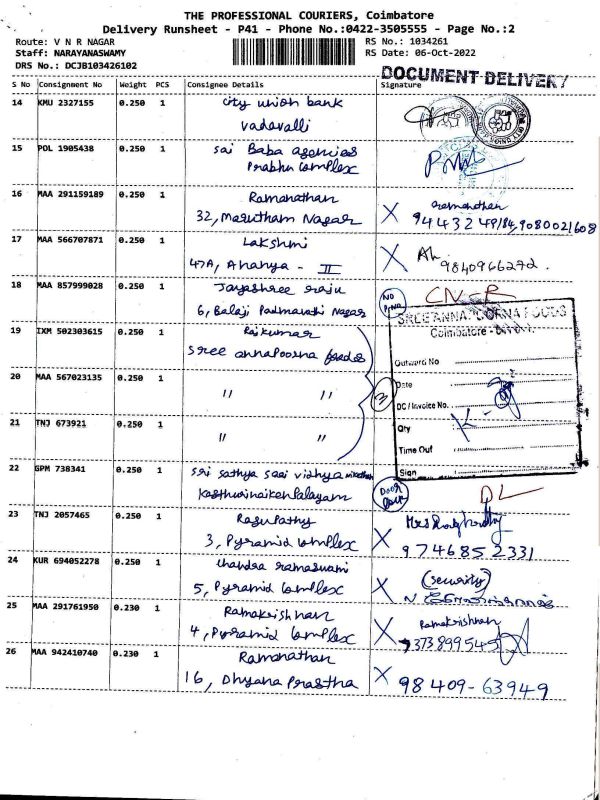 THE PROFESSIONAL COURIERS, Coimbatore
Delivery Runsheet - P41 - Phone No.:0422-3505555 - Page No.:2
Route: V N R NAGAR RS No.: 1034261
Staff: NARAYANASWAMY RS Date: 06-Oct-2022
DRS No.: DCJB103426102
DOCUMENT DELIVERY
S No Consignment No Weight PCS Consignee Details Signature
14 KMU 2327155 0.250 1 City union bank
Vadavalli
15 POL 1905438 0.250 1 Sai Baba agencies
Prabhu Complex
16 MAA 291159189 0.250 1 Ramanathan ramanathan
32, Marutham Nagar X 9443249184, 9080021608
17 MAA 566707871 0.250 1 Lakshmi
47A, Ananya - II X 9840966272.
18 MAA 857999028 0.250 1 Jayashree raju NO
6, Balaji Padmavathi Nagar
19 IXM 502303615 0.250 1 Rajkumar SREE ANNAPOORNA FOODS
Sree annapoorna foods Coimbatore -
Outward No
20 MAA 567023135 0.250 1 3 Date
" " DC / Invoice No.
21 TNJ 673921 0.250 1 Qty
" " Time Out
22 GPM 738341 0.250 1 Sri Sathya Saai Vidhya Sign
Kasthurinaikenpalayam Door Lock DL
23 TNJ 2057465 0.250 1 Ragupathy
3, Pyramid Complex X 9746852331
24 KUR 694052278 0.250 1 Chandra ramaswami (security)
5, Pyramid Complex X
25 MAA 291761950 0.230 1 Ramakrishnan Ramakrishnan
4, Pyramid Complex X 9373899545
26 MAA 942410740 0.230 1 Ramanathan
16, Dhyana Prastha X 98409-63949